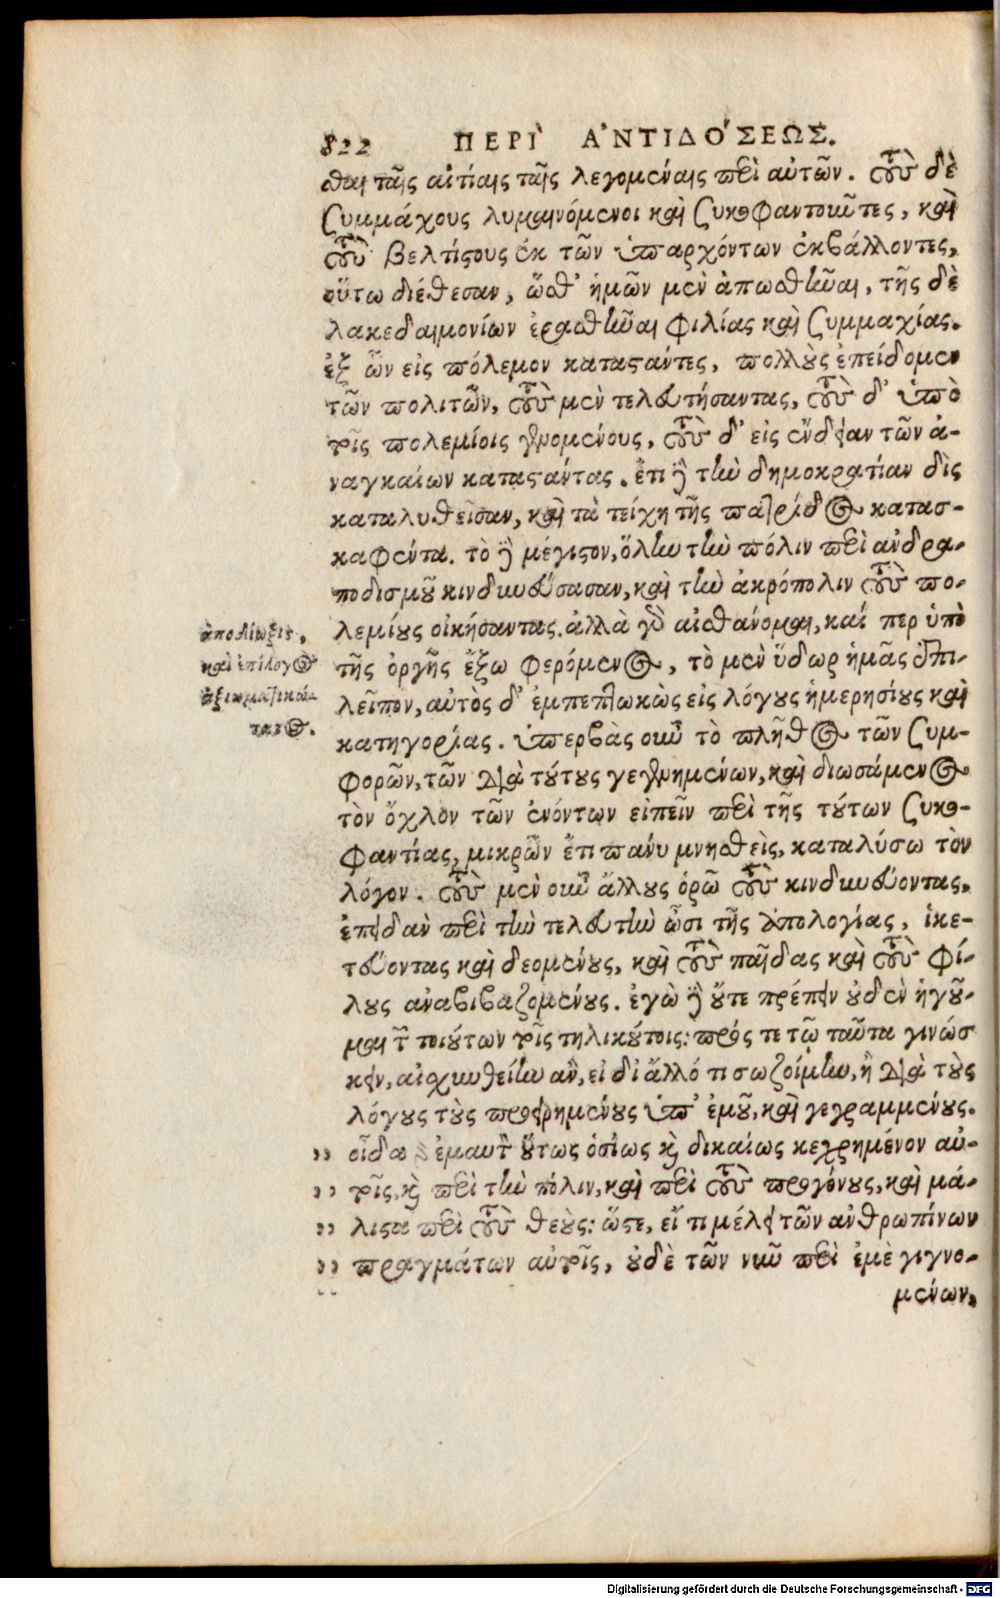 822 ΠΕΡΙ` Α'ΝΤΙΔΟ'ΣΕΩΣ.
σθαι ταῖς αἰτίαις ταῖς λεγομέναις περὶ αὐτῶν. τοὺς δὲ
συμμάχους λυμαινόμενοι καὶ συκοφαντοῦντες, καὶ
τοὺς βελτίστους ἐκ τῶν ὑπαρχόντων ἐκβάλλοντες,
οὕτω διέθεσαν, ὥσθ' ἡμῶν μὲν ἀπωσθῆναι, τῆς δὲ
λακεδαιμονίων ἐρασθῆναι φιλίας καὶ συμμαχίας.
ἐξ ὧν εἰς πόλεμον καταστάντες, πολλοὺς ἐπείδομεν
τῶν πολιτῶν, τοὺς μὲν τελευτήσαντας, τοὺς δ' ὑπὸ
τοῖς πολεμίοις γενομένους, τοὺς δ' εἰς ἔνδειαν τῶν ἀ-
ναγκαίων καταστάντας. ἔτι δὲ τὴν δημοκρατίαν δὶς
καταλυθεῖσαν, καὶ τὰ τείχη τῆς πατρίδος κατασ-
καφέντα. τὸ δὲ μέγιστον, ὅλην τὴν πόλιν περὶ ἀνδρα-
ποδισμοῦ κινδυνεύσασαν, καὶ τὴν ἀκρόπολιν τοὺς πο-
λεμίους οἰκήσαντας. ἀλλὰ γὰρ αἰσθάνομαι, καί περ ὑπὸ
τῆς ὀργῆς ἔξω φερόμενος, τὸ μὲν ὕδωρ ἡμᾶς ἐπι-
λεῖπον, αὐτὸς δ' ἐμπεπτωκὼς εἰς λόγους ἡμερησίους καὶ
κατηγορίας. ὑπερβὰς οὖν τὸ πλῆθος τῶν συμ-
φορῶν, τῶν διὰ τούτους γεγενημένων, καὶ διωσάμενος
τὸν ὄχλον τῶν ἐνόντων εἰπεῖν περὶ τῆς τούτων συκο-
φαντίας, μικρῶν ἔτι πάνυ μνησθεὶς, καταλύσω τὸν
λόγον. τοὺς μὲν οὖν ἄλλους ὁρῶ τοὺς κινδυνεύοντας,
ἐπειδὰν περὶ τὴν τελευτὴν ὦσι τῆς ἀπολογίας, ἱκε-
τεύοντας καὶ δεομένους, καὶ τοὺς παῖδας καὶ τοὺς φί-
λους ἀναβιβαζομένους. ἐγὼ δὲ οὔτε πρέπειν οὐδὲν ἡγοῦ-
μαι τῶν τοιούτων τοῖς τηλικούτοις: πρός τε τῷ ταῦτα γινώσ
κειν, αἰσχυνθείην ἂν, εἰ δι' ἄλλό τι σωζοίμην, ἢ διὰ τοὺς
λόγους τοὺς προειρημένους ὑπ' ἐμοῦ, καὶ γεγραμμένους.
,, οἶδα ἐμαυτὸν οὕτως ὁσίως καὶ δικαίως κεχρημένον αὐ-
,, τοῖς, καὶ περὶ τὴν πόλιν, καὶ περὶ τοὺς προγόνους, καὶ μά-
,, λιστα περὶ τοὺς θεοὺς: ὥστε, εἴ τι μέλει τῶν ἀνθρωπίνων
,, πραγμάτων αὐτοῖς, οὐδὲ τῶν νῦν περὶ ἐμὲ γιγνο-
μένων,
ἀπολίωξις,
καὶ ἐπίλογος
ἀξιωματικώ-
τατος.
Digitalisierung gefördert durch die Deutsche Forschungsgemeinschaft - DFG